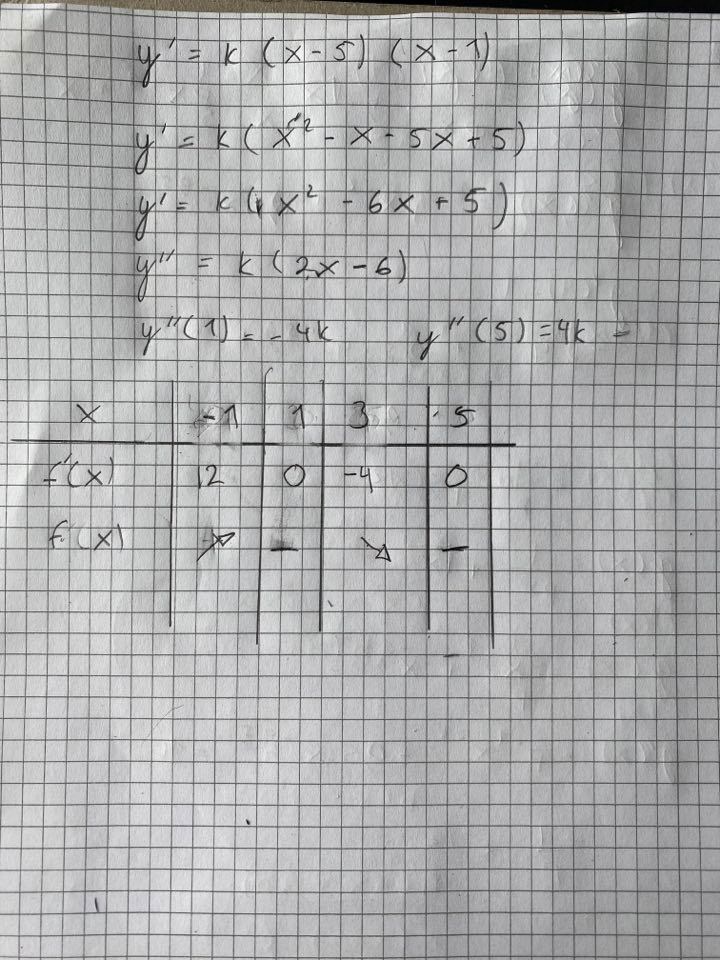 y' = k (x - 5) (x - 1)
y' = k ( x² - x - 5x + 5)
y' = k ( x² - 6x + 5)
y'' = k (2x - 6)
y''(1) = - 4k y''(5) = 4k -
x -1 1 3 5
f'(x) 12 0 -4 0
f(x) ↗ — ↘ —